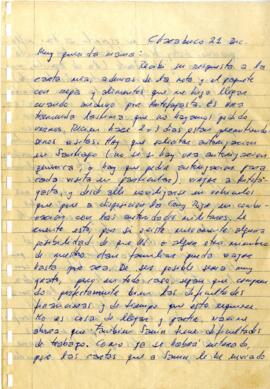 Chacabuco 21 dic.
Muy querida mamá:
Recibí su respuesta a la
carta mía, además de la nota y el paquete
con ropa y alimentos que me dejó
cuando anduvo por Antofagasta. Es una
tremenda lástima que no hayamos podido
vernos. Recién hace 2 ó 3 días están permitiendo
visitas. Hay que solicitar autorización
en Santiago (no sé si hay una autorización
y hay que pedir autorización para
cada visita en particular), viajar a Antofa-
gasta, y desde allí movilizarse en vehículo
que pone a disposición la Cruz Roja en combi-
nación con las autoridades militares. Le
cuento esto, por si existe mínimamente alguna
posibilidad de que Ud. o algún otro miembro
de nuestro gran familión pueda viajar
hasta por acá. De ser posible sería muy
grato, pero en todo caso, sepan que comprendo
perfectamente bien las dificultades
financieras y de tiempo que esto requiere.
No es cosa de llegar y partir,
ahora que también Sonia tiene dificultades
de trabajo. Como ya se habrá enterado,
por las cartas que a Sonia le he enviado